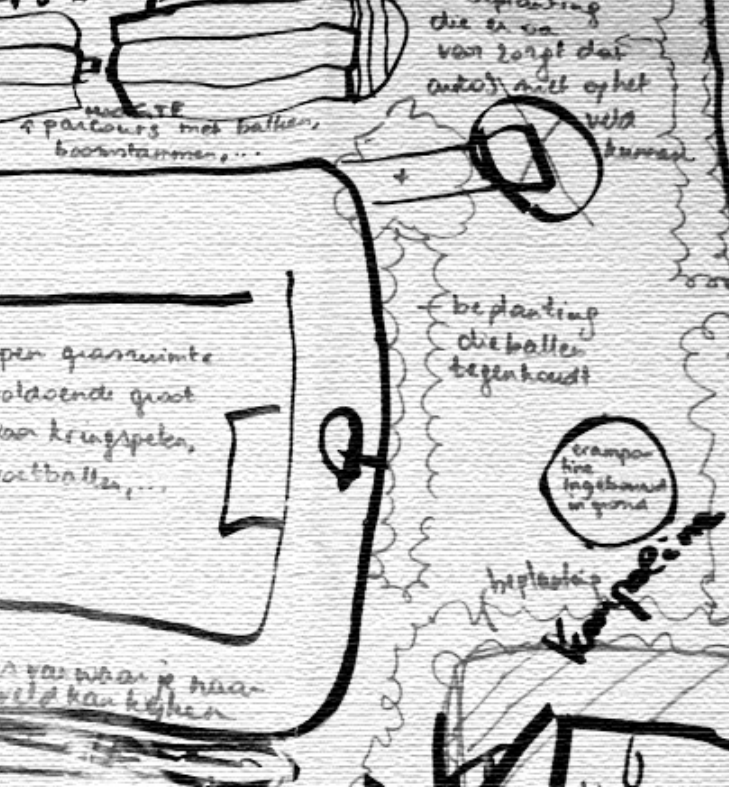 beplanting
die er
voor zorgt dat
auto's niet op het
veld
kunnen
parcours met balken,
boomstammen,...
beplanting
die ballen
tegenhoudt
pen grasruimte
oldoende groot
kringspelen,
oetballen,...
trampo-
line
ingebouwd
in grond
beplanting
van waar je naar
veld kan kijken